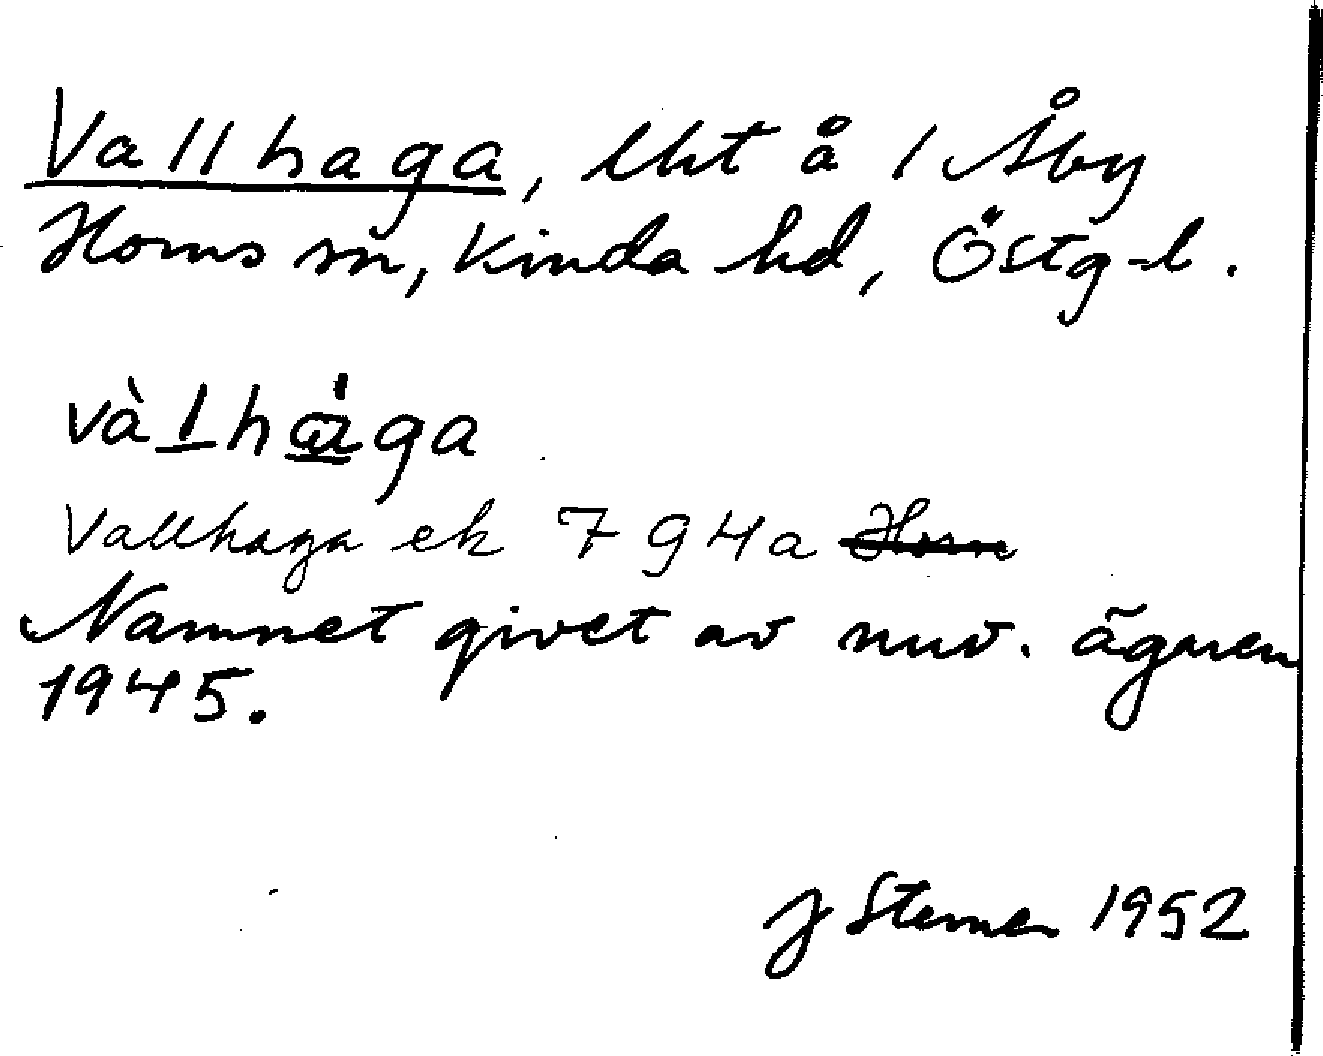 Vallhaga, lht å 1 Åby
Horns sn, Kinda hd, Östg-l.
vàlhɑ̇ga
Vallhaga ek 794a Horn
Namnet givet av nuv. ägaren
1945.
J Sterner 1952